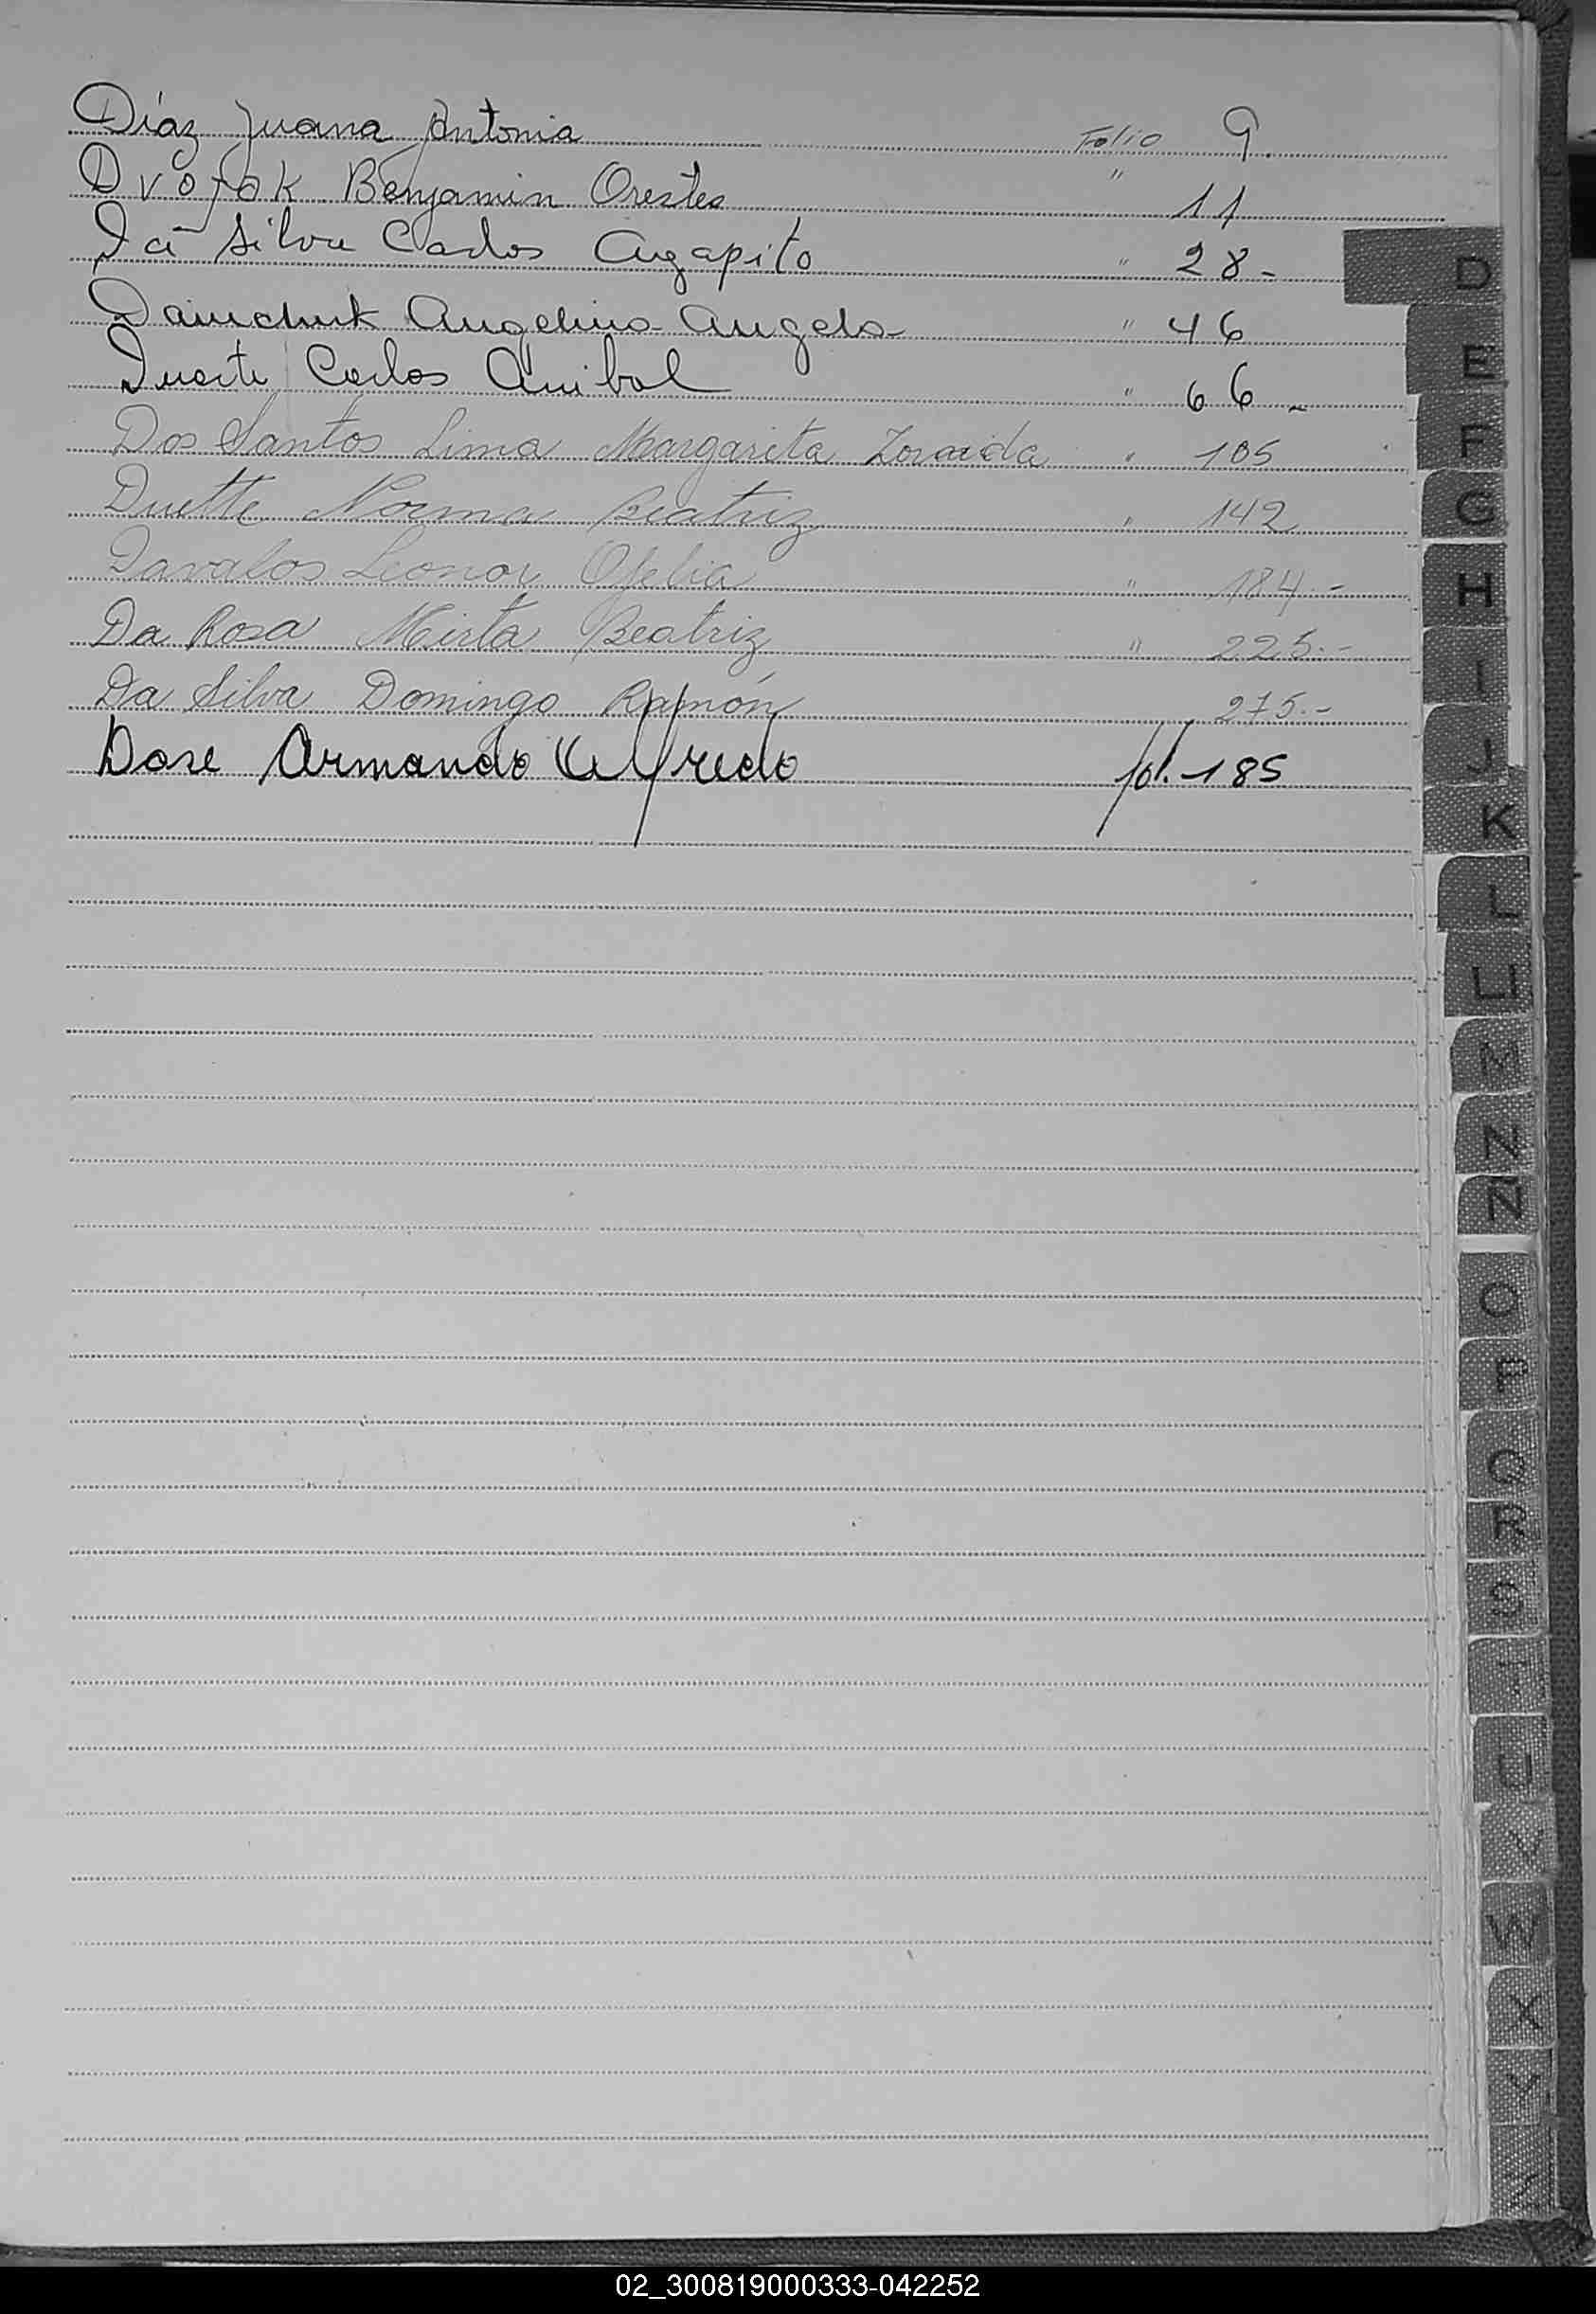 Díaz Juana Antonia Folio 9.
Dvořak Benjamin Orestes " 11
Da Silva Carlos Agapito " 28-
Dainchuk Angelino Angelo " 46
Duarte Carlos Anibal " 66-
Dos Santos Lima Margarita Zoraida " 105
Duette Norma Beatriz " 142
Davalos Leonor Ofelia " 184.-
Da Rosa Mirta Beatriz " 225.-
Da Silva Domingo Ramón 275.-
Dose Armando Alfredo fol. 185
D
E
F
G
H
I
J
K
L
LL
M
N
Ñ
O
P
Q
R
S
T
U
V
W
X
Y
Z
02_300819000333-042252